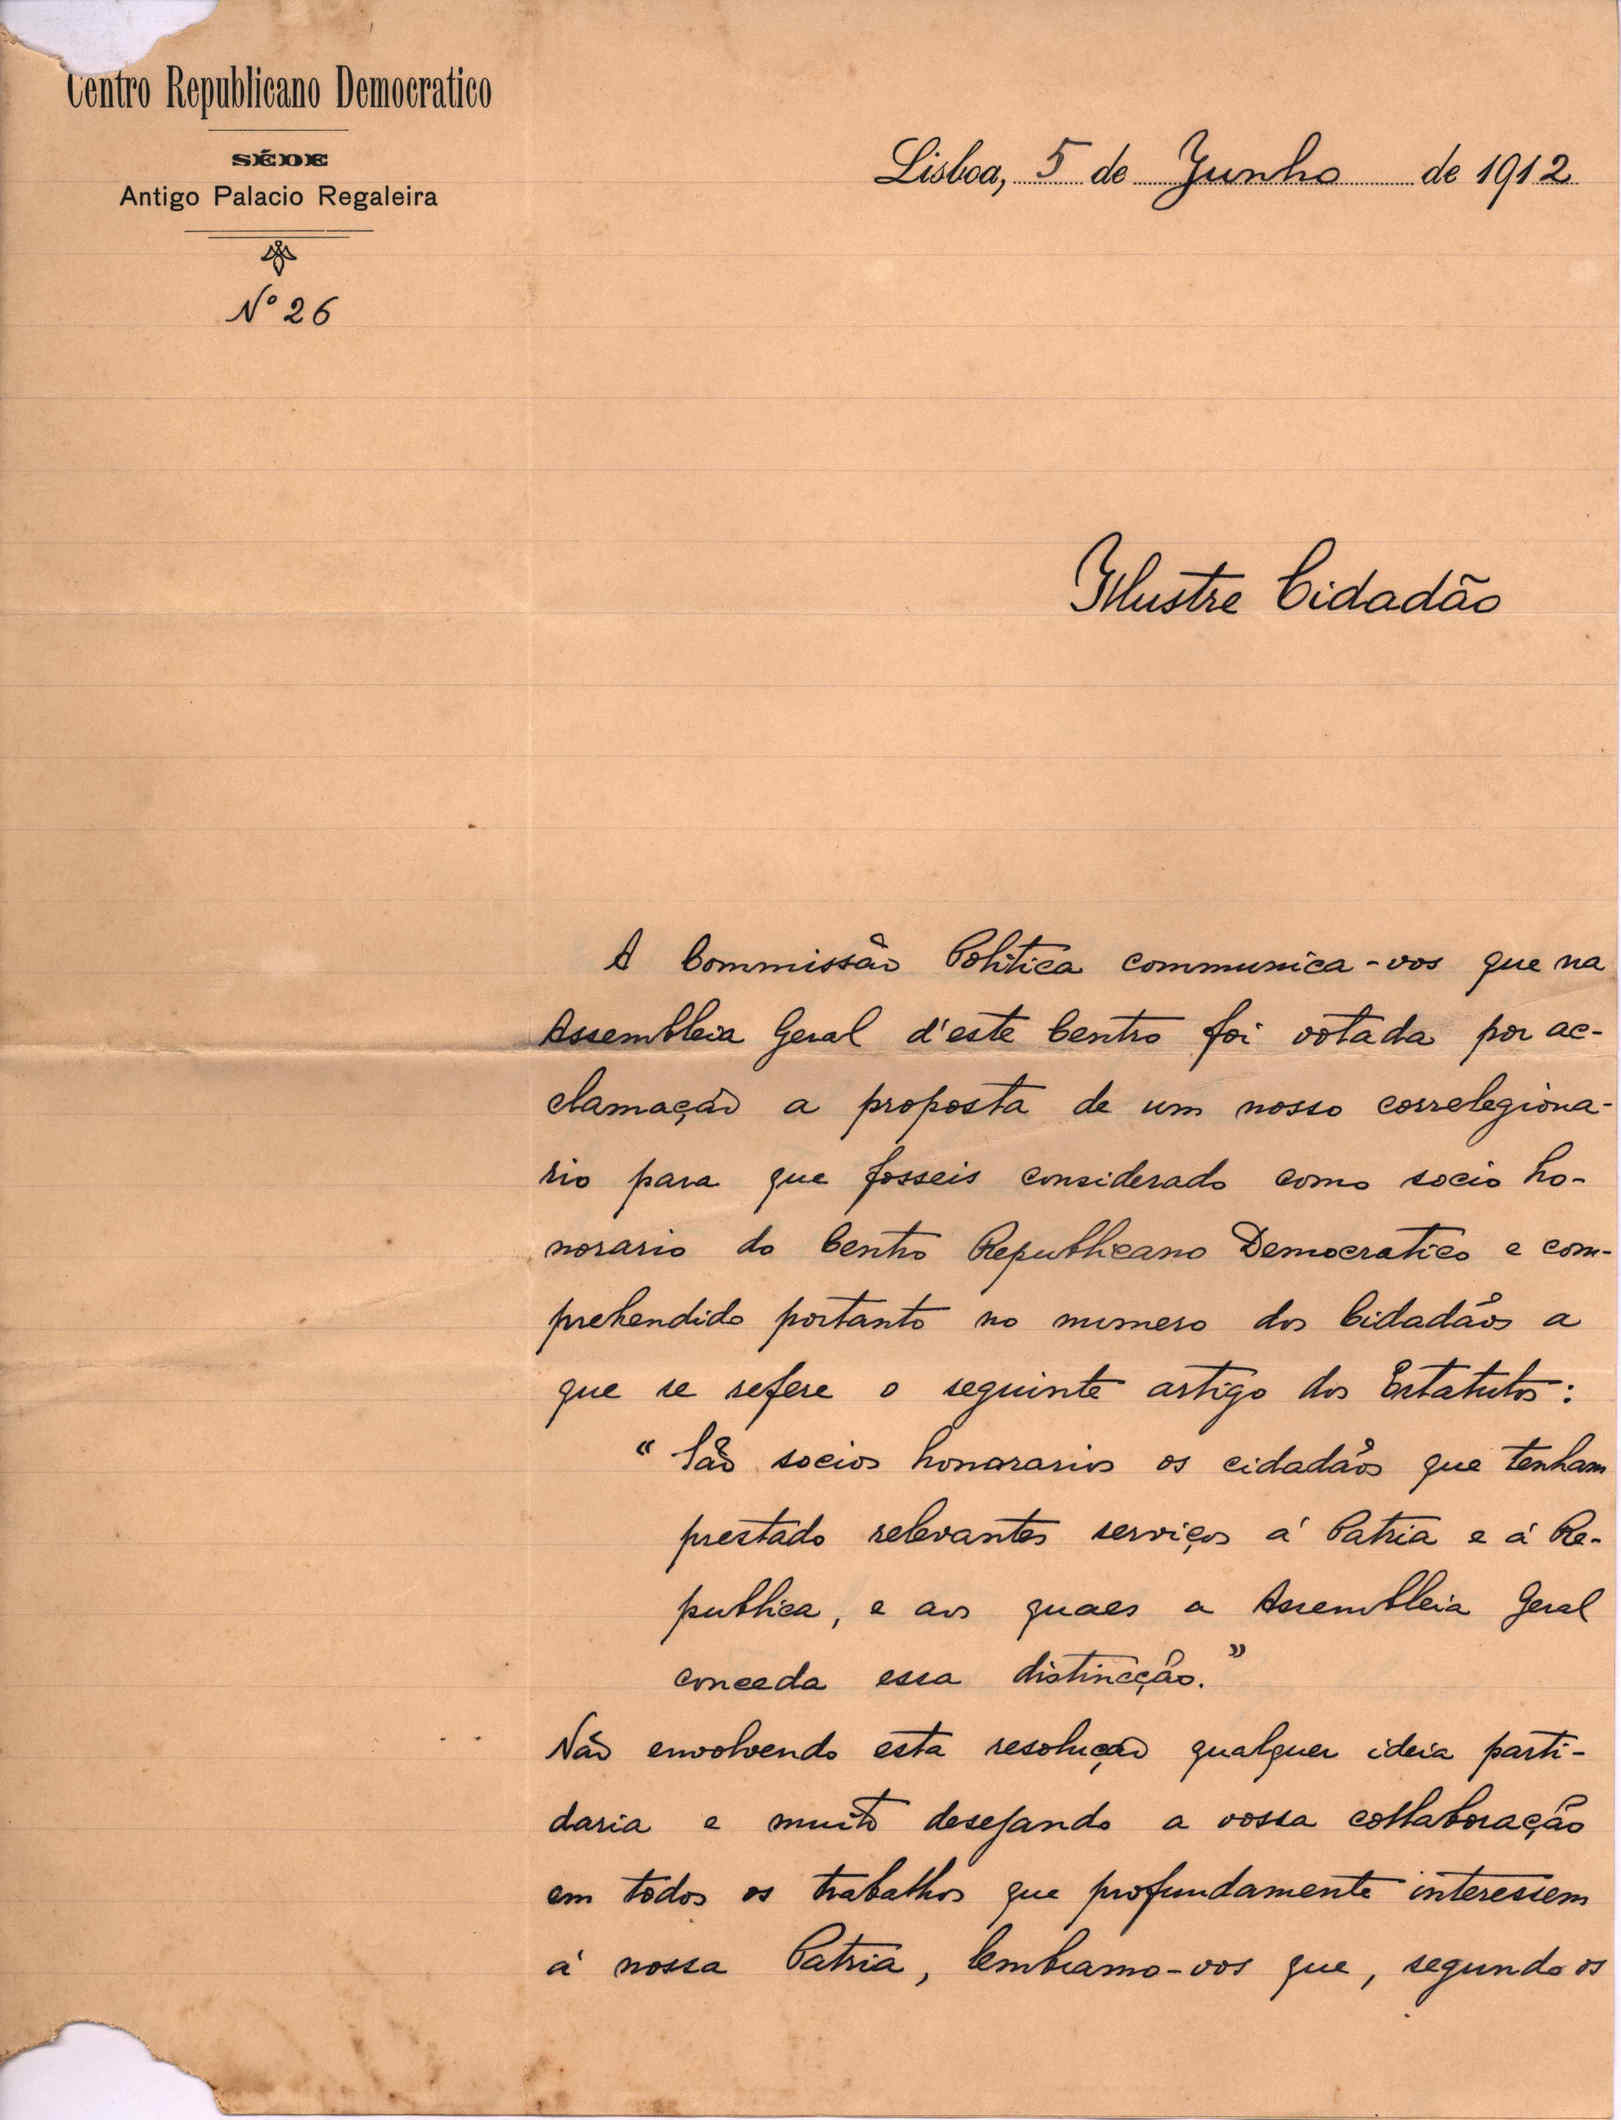 Centro Republicano Democratico
SÉDE
Antigo Palacio Regaleira
Nº 26
Lisboa, 5 de Junho de 1912
Illustre Cidadão
A Commissão Politica communica-vos que na
Assembleia Geral d'este Centro foi votada por ac-
clamação a proposta de um nosso correlegiona-
rio para que fosseis considerado como socio ho-
norario do Centro Republicano Democratico e com-
prehendido portanto no numero dos Cidadãos a
que se refere o seguinte artigo dos Estatutos:
“São socios honorarios os cidadãos que tenham
prestado relevantes serviços á Patria e á Re-
publica, e aos quaes a Assembleia Geral
conceda essa distincção.”
Não envolvendo esta resolução qualquer ideia parti-
daria e muito desejando a vossa collaboração
em todos os trabalhos que profundamente interessem
á nossa Patria, lembramo-vos que, segundo os